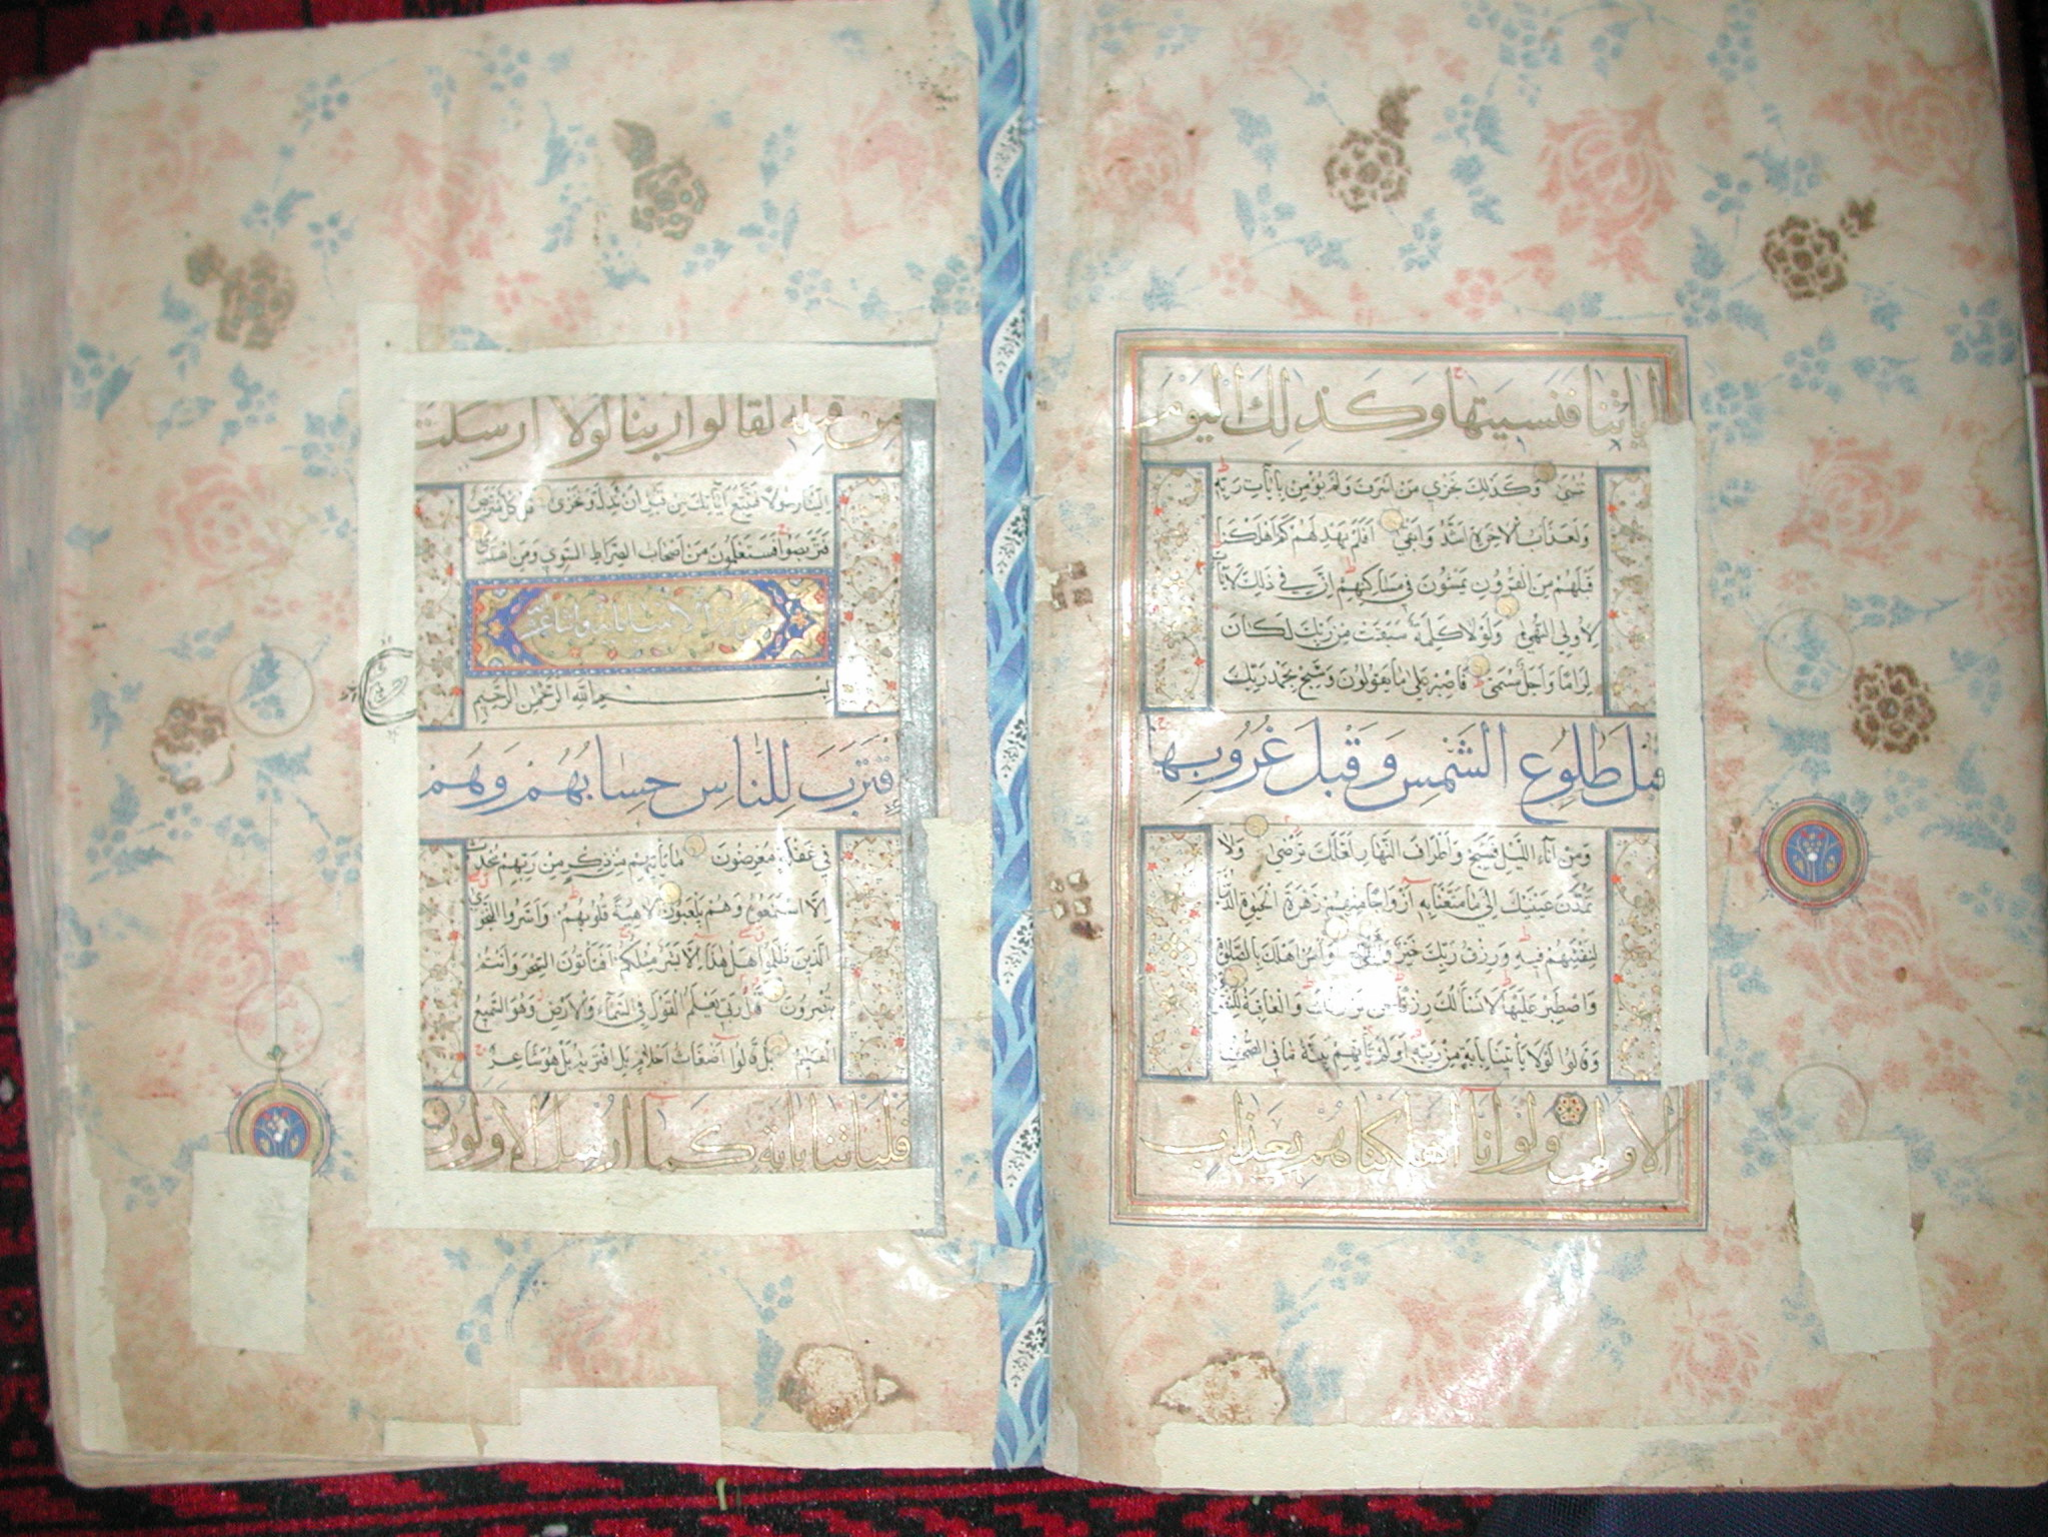 اياتنا فنسيتها وكذلك اليوم
تنسى وكذلك نجزي من اسرف ولم يؤمن بايات ربه
ولعذاب الاخرة اشد وابقى افلم يهد لهم كم اهلكنا
قبلهم من القرون يمشون في مساكنهم ان في ذلك لايات
لاولي النهى ولولا كلمة سبقت من ربك لكان
لزاما واجل مسمى فاصبر على ما يقولون وسبح بحمد ربك
قبل طلوع الشمس وقبل غروبها
ومن اناء الليل فسبح واطراف النهار لعلك ترضى ولا
تمدن عينيك الى ما متعنا به ازواجا منهم زهرة الحيوة الدنيا
لنفتنهم فيه ورزق ربك خير وابقى وامر اهلك بالصلوة
واصطبر عليها لا نسألك رزقا نحن نرزقك والعاقبة للتقوى
وقالوا لولا ياتينا باية من ربه اولم تاتهم بينة ما في الصحف
الاولى ولو انا اهلكناهم بعذاب
من قبله لقالوا ربنا لولا ارسلت
الينا رسولا فنتبع اياتك من قبل ان نذل ونخزى قل كل متربص
فتربصوا فستعلمون من اصحاب الصراط السوي ومن اهتدى
بسم الله الرحمن الرحيم
اقترب للناس حسابهم وهم
في غفلة معرضون ما ياتيهم من ذكر من ربهم محدث
الا استمعوه وهم يلعبون لاهية قلوبهم واسروا النجوى
الذين ظلموا هل هذا الا بشر مثلكم افتأتون السحر وانتم
تبصرون قل ربي يعلم القول في السماء والارض وهو السميع
العليم بل قالوا اضغاث احلام بل افتريه بل هو شاعر
فلياتنا باية كما ارسل الاولون